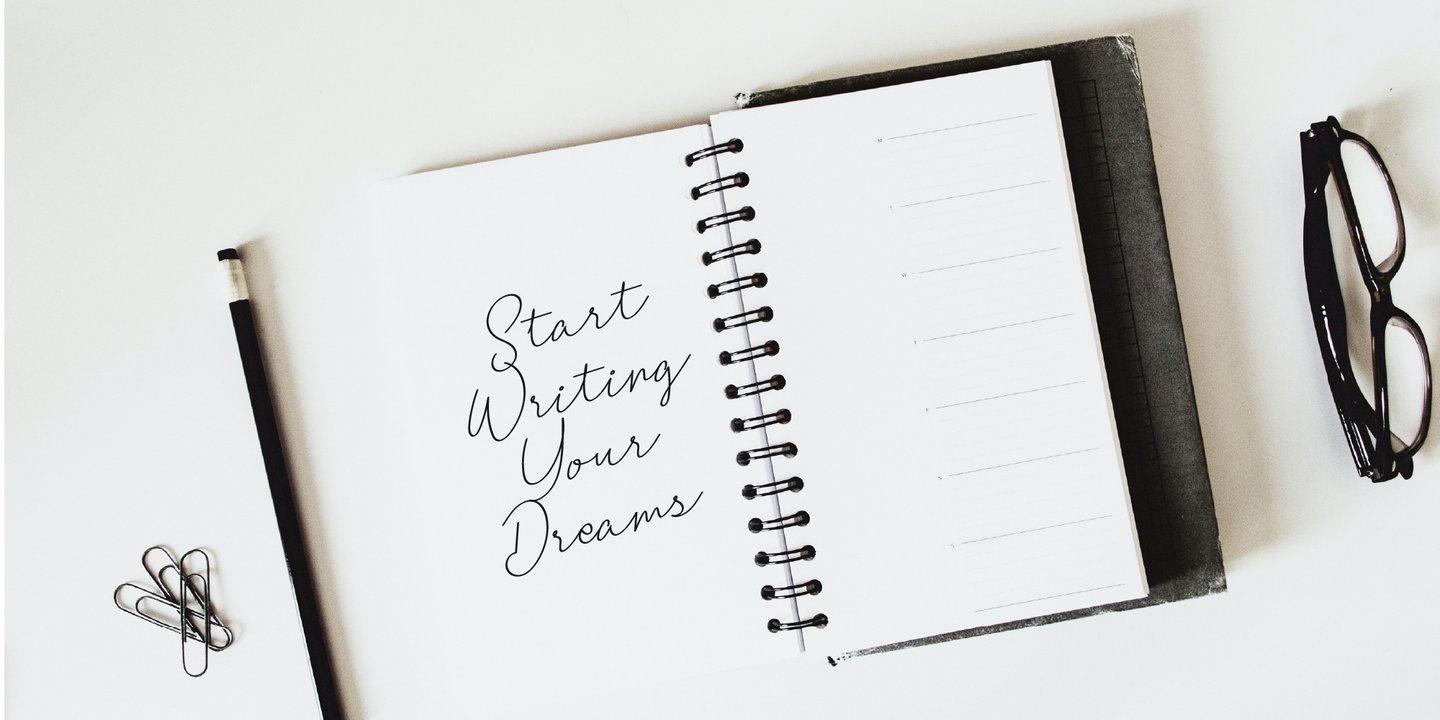 Start
Writing
Your
Dreams
M
T
W
T
F
S
S